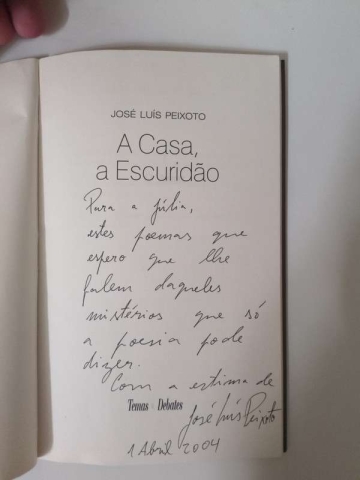 JOSÉ LUÍS PEIXOTO
A Casa,
a Escuridão
Para a Júlia,
estes poemas que
espero que lhe
falem daqueles
mistérios que só
a poesia pode
dizer.
Com a estima de
Temas Debates
José Luís Peixoto
1 Abril 2004